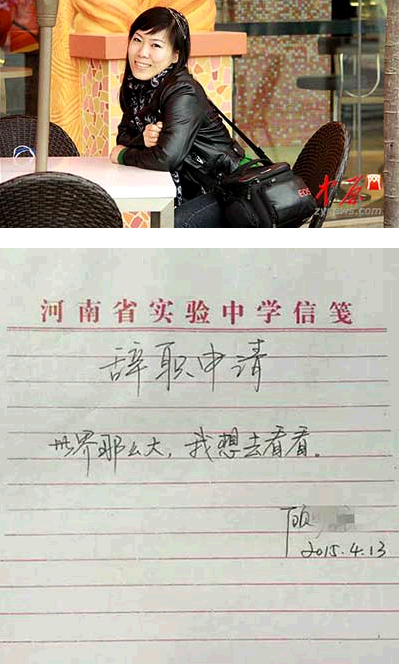 EOS
中原网
zynews.com
河南省实验中学信笺
辞职申请
世界那么大，我想去看看。
顾
2015.4.13